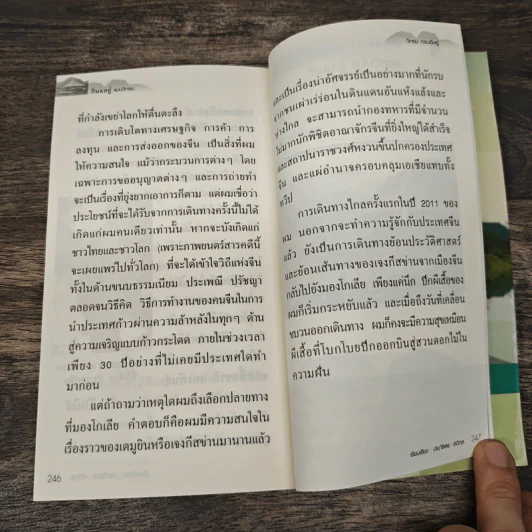 กินอยู่ แบบวิกรม
ที่กำลังเขย่าโลกให้ตื่นตะลึง
การเติบโตทางเศรษฐกิจ การค้า การ
ลงทุน และการส่งออกของจีน เป็นสิ่งที่ผม
ให้ความสนใจ แม้ว่ากระบวนการต่างๆ โดย
เฉพาะการขออนุญาตต่างๆ และการถ่ายทำ
จะเป็นเรื่องที่ยุ่งยากเอาการก็ตาม แต่ผมเชื่อว่า
ประโยชน์ที่จะได้รับจากการเดินทางครั้งนี้ไม่ได้
เกิดแก่ผมคนเดียวเท่านั้น หากจะบังเกิดแก่
ชาวไทยและชาวโลก (เพราะภาพยนตร์สารคดีนี้
จะเผยแพร่ไปทั่วโลก) ที่จะได้เข้าใจวิถีแห่งจีน
ทั้งในด้านขนบธรรมเนียม ประเพณี ปรัชญา
ตลอดจนวิธีคิด วิธีการทำงานของคนจีนในการ
นำประเทศก้าวผ่านความล้าหลังในทุกๆ ด้าน
สู่ความเจริญแบบก้าวกระโดด ภายในช่วงเวลา
เพียง 30 ปีอย่างที่ไม่เคยมีประเทศใดทำ
มาก่อน
แต่ถ้าถามว่าเหตุใดผมถึงเลือกปลายทาง
ที่มองโกเลีย คำตอบก็คือผมมีความสนใจใน
เรื่องราวของเตมูจินหรือเจงกีสข่านมานานแล้ว
246
วิกรม กรมดิษฐ์
และเป็นเรื่องน่าอัศจรรย์เป็นอย่างมากที่นักรบ
จากชนเผ่าเร่ร่อนในดินแดนอันแห้งแล้งและ
ห่างไกล จะสามารถนำกองทหารที่มีจำนวน
ไม่มากนักพิชิตอาณาจักรจีนที่ยิ่งใหญ่ได้สำเร็จ
และสถาปนาราชวงศ์หงวนขึ้นปกครองประเทศ
จีน และแผ่อำนาจครอบคลุมเอเชียแทบทั้ง
ทวีป
การเดินทางไกลครั้งแรกในปี 2011 ของ
ผม นอกจากจะทำความรู้จักกับประเทศจีน
แล้ว ยังเป็นการเดินทางย้อนประวัติศาสตร์
และย้อนเส้นทางของเจงกีสข่านจากเมืองจีน
กลับไปยังมองโกเลีย เพียงแค่นึก ปีกผีเสื้อของ
ผมก็เริ่มกระหยับแล้ว และเมื่อถึงวันที่เคลื่อน
ขบวนออกเดินทาง ผมก็คงจะมีความสุขเหมือน
ผีเสื้อที่โบกโบยปีกออกบินสู่สวนดอกไม้ใน
ความฝัน
247